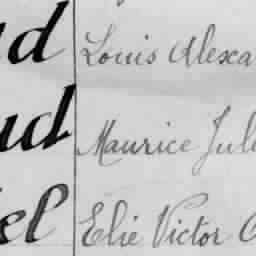 d Louis Alexa
ud Maurice Jul
el Elie Victor